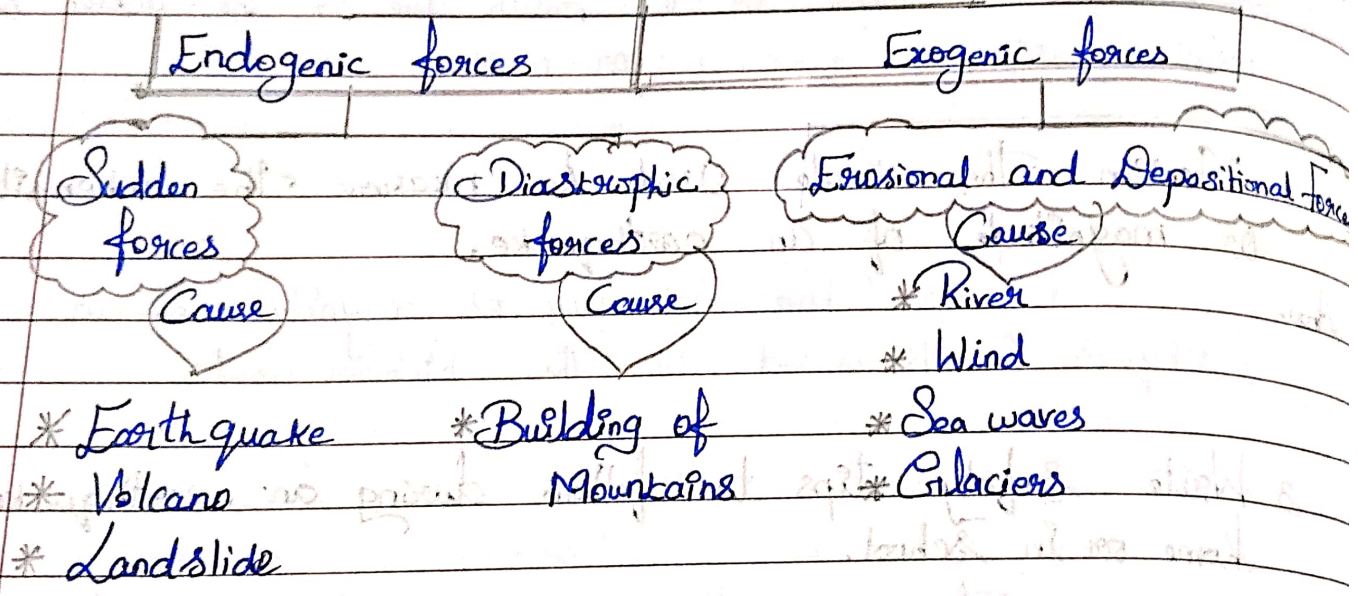 Endogenic forces
Exogenic forces
Sudden
forces
Cause
* Earthquake
* Volcano
* Landslide
Diastrophic
forces
Cause
* Building of
Mountains
Erosional and Depositional forces
Cause
* River
* Wind
* Sea waves
* Glaciers